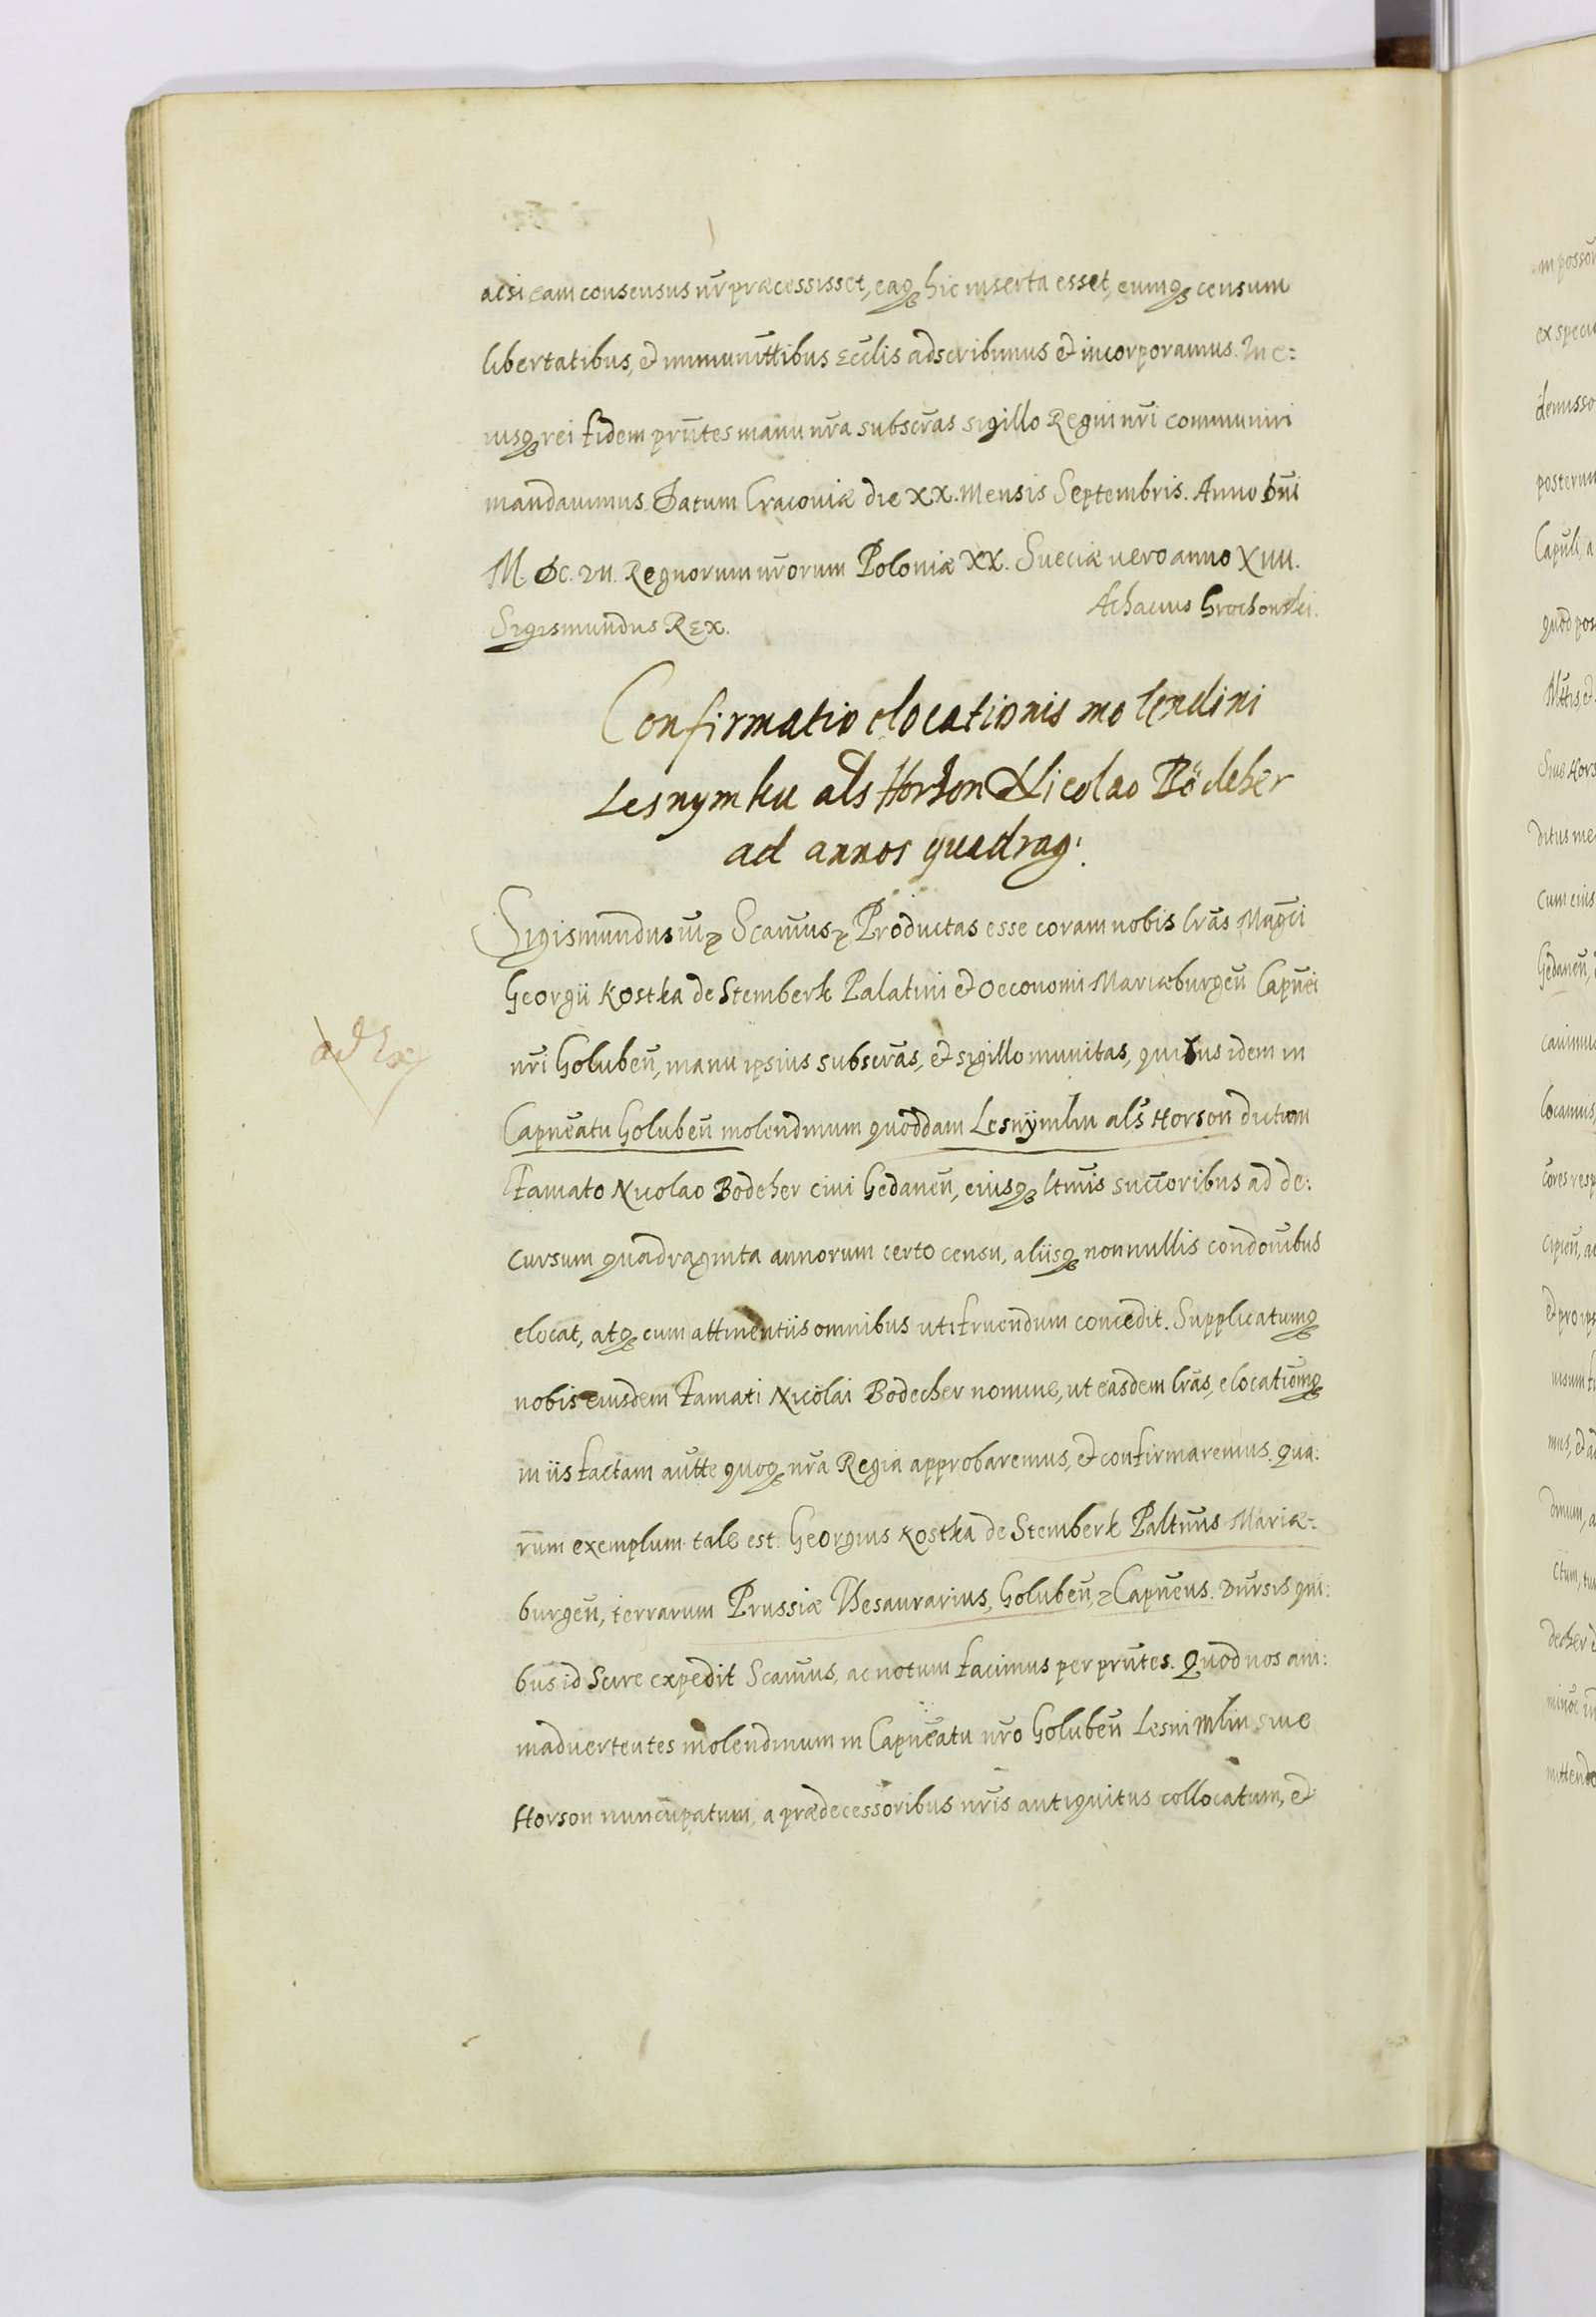 acsi eam consensus nr̃ præcessisset, eaq₃ hic inserta esset, eumq₃ censum
libertatibus, et immunit̃tibus Ecclis adscribimus et incorporamus. In e:
iusq₃ rei fidem prñtes manu nr̃a subscr̃as sigillo Regni nr̃i communiri
mandauimus. Datum Cracouiæ die XX. Mensis Septembris. Anno Dñi
M. DC. VII. Regnorum nr̃orum Poloniæ XX. Sueciæ uero anno XIIII.
Sigismundus REX.
Achacius Grochowski.
Confirmatio elocationis molendini
Lesnymlin als Horson Nicolao Bödeker
ad annos quadrag:
Sigismundus III ꝛ Scimus ꝛ Productas esse coram nobis lr̃as Magci
Georgii Kostka de Stemberk Palatini et Oeconomi Mariæburgeñ Capñei
nr̃i Golubeñ, manu ipsius subscr̃as, et sigillo munitas, quibus idem in
Capñeatu Golubeñ molendinum quoddam Lesnÿmlin als Horson dictum
Famato Nicolao Bodeker ciui Gedaneñ, eiusq₃ ltmis succoribus ad de:
cursum quadraginta annorum certo censu, aliisq₃ nonnullis condonibus
elocat, atq₃ cum attinentiis omnibus utifruendum concedit. Supplicatumq₃
nobis eiusdem Famati Nicolai Bodecher nomine, ut easdem lr̃as, elocationẽmq₃
in iis factam autte quoq₃ nr̃a Regia approbaremus, et confirmaremus. Qua:
rum exemplum tale est. Georgius Kostka de Stemberk Paltnus Mariæ:
burgeñ, terrarum Prussiæ Thesaurarius, Golubeñ, ꝛ Capñeus. Vñrsis qui:
bus id Scire expedit Scimus, ac notum facimus per prñtes. Quod nos ani:
maduertentes molendinum in Capñeatu nr̃o Golubeñ Lesnimlin siue
Horson nuncupatum, a prædecessoribus nr̃is antiquitus collocatum, et